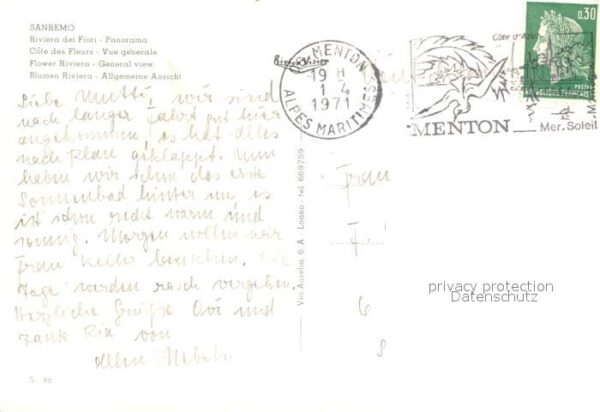 SANREMO
Riviera dei Fiori - Panorama
Côte des Fleurs - Vue générale
Flower Riviera - General view
Blumen Riviera - Allgemeine Ansicht
Liebe Mutti, wir sind
nach langer Fahrt gut hier
angekommen, es hat alles
nach Plan geklappt. Nun
haben wir schon das erste
Sonnenbad hinter uns, es
ist schon recht warm und
sonnig. Morgen wollen wir
Frau Keller besuchen. Die
Tage werden rasch vergehen.
Herzliche Grüße Ovi und
Tante Ria von
allen
S. 46
Via Aurelia, 6 A - Loano - tel. 669759
MENTON
19 H
1 4
1971
ALPES MARITIMES
Côte d'Azur
MENTON
Mer. Soleil
0,30
POSTES
REPUBLIQUE FRANÇAISE
Frau
privacy protection
Datenschutz